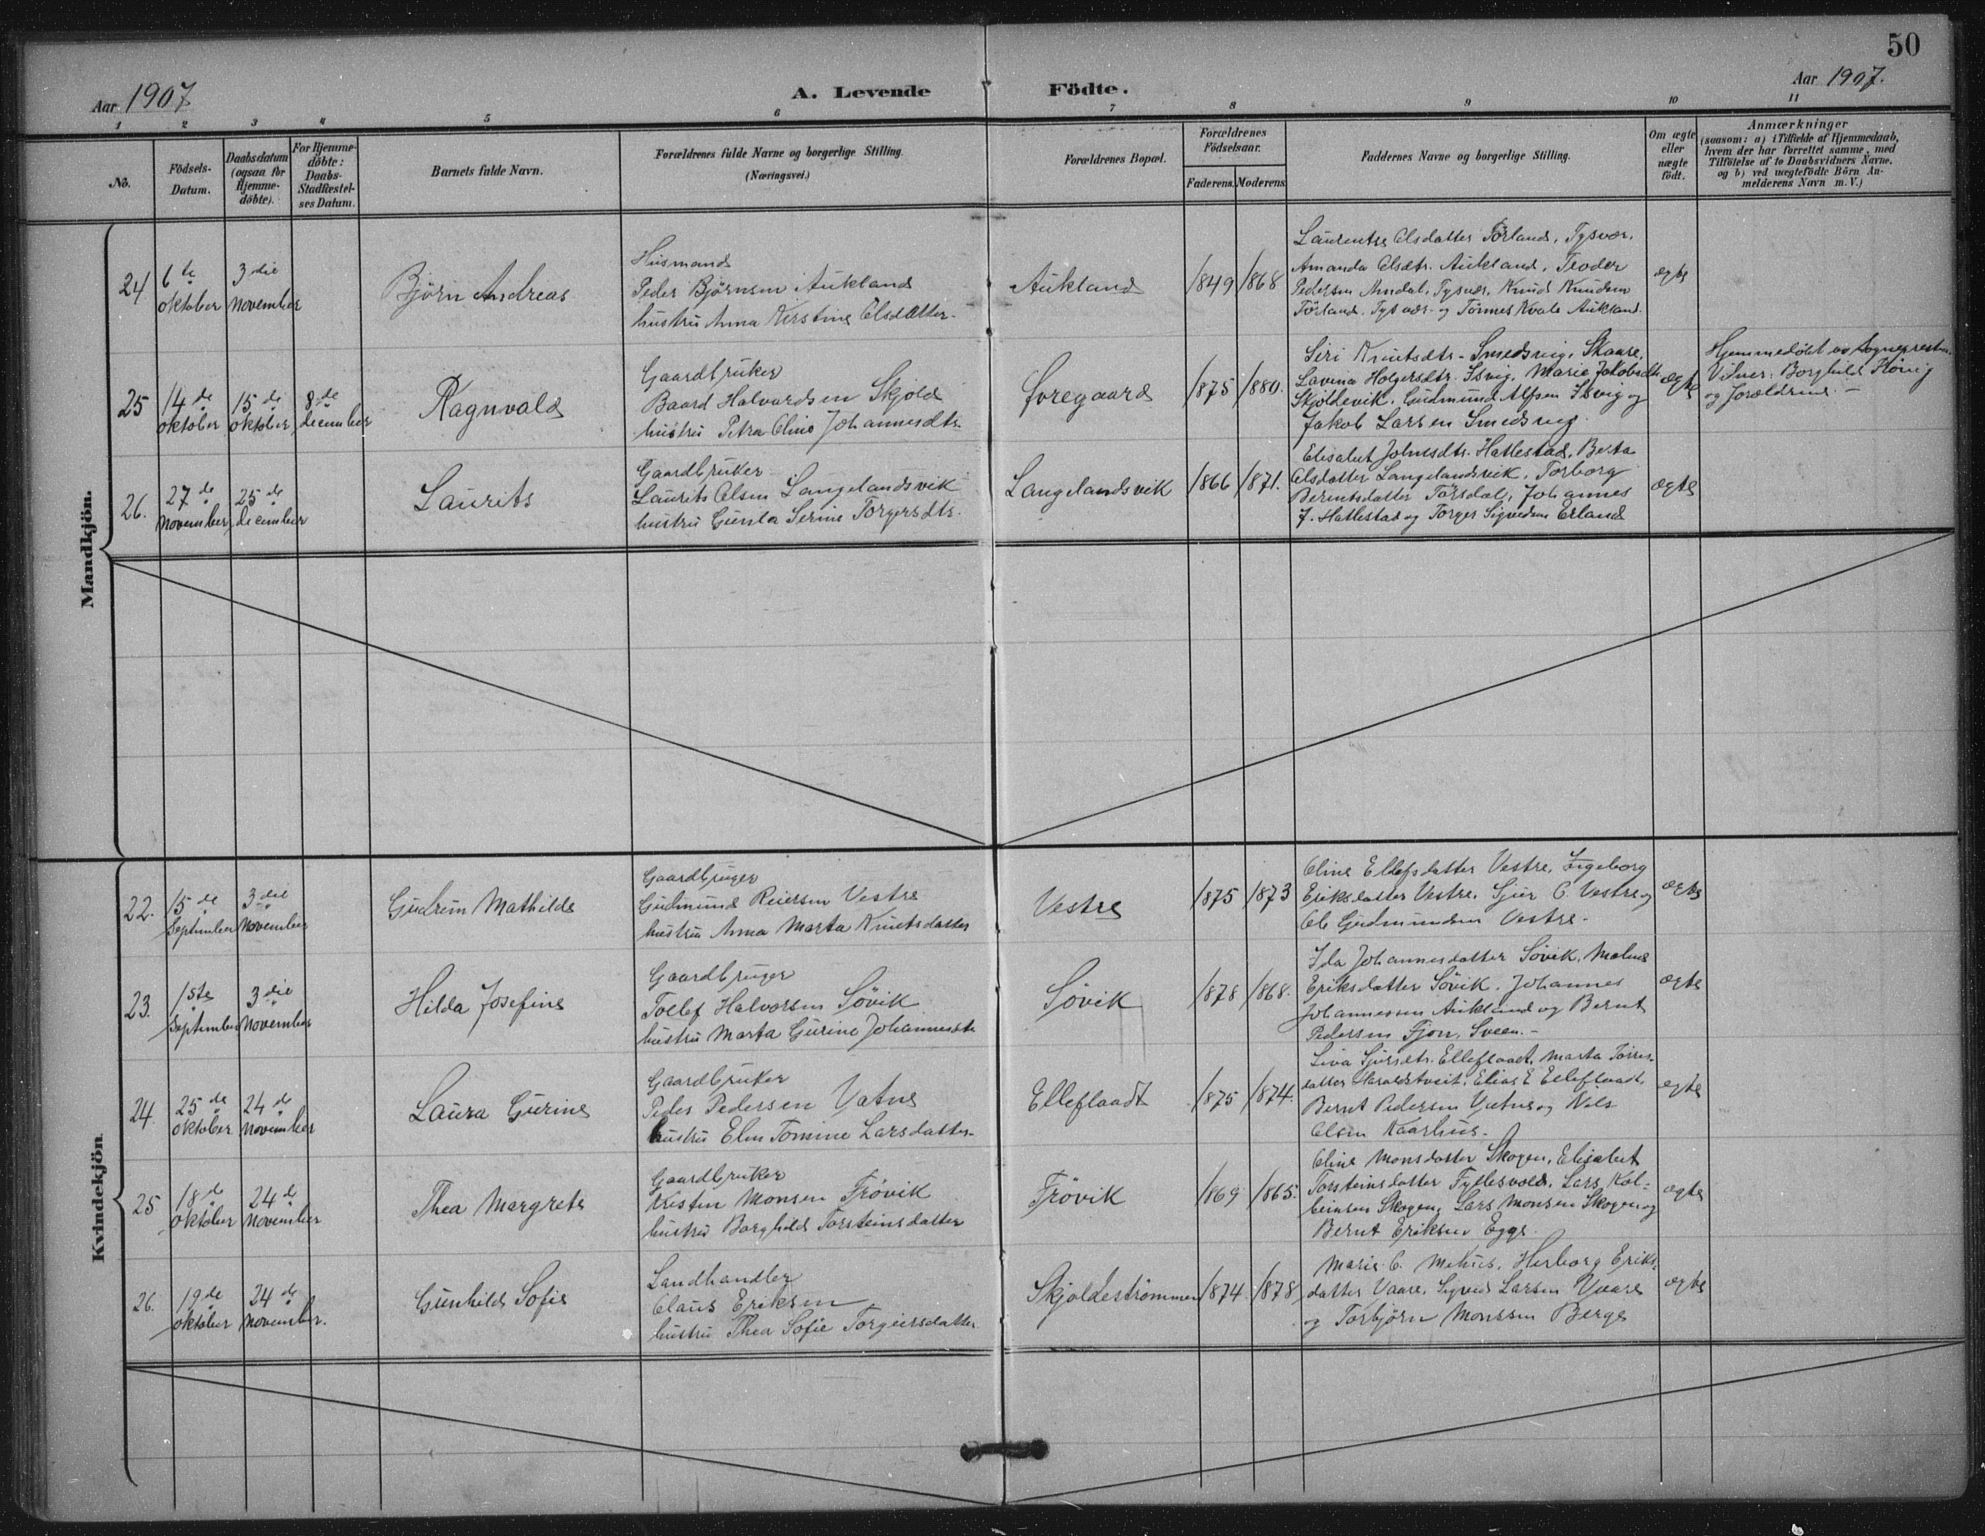 50
Aar 1907
A. Levende
Födte.
Aar 1907.
1 2 3 4 5 6 7 8 9 10 11
No.
Födsels-Datum.
Daabsdatum (ogsaa for Hjemme-döbte).
For Hjemme-döbte: Daabs-Stadfæstel-ses Datum.
Barnets fulde Navn.
Forældrenes fulde Navne og borgerlige Stilling.
(Næringsvei.)
Forældrenes Bopæl.
Forældrenes Födselsaar.
Faderens. Moderens.
Faddernes Navne og borgerlige Stilling.
Om ægte eller uægte födt.
Anmærkninger
(saasom: a) i Tilfælde af Hjemmedaab,
hvem der har forrettet samme, med
Tilföielse af to Daabsvidners Navne.
og b) ved uægtefödte Börn An-
melderens Navn m. V.)
Mandkjön.
24 6te oktober 3die november
Bjørn Andreas
Husmand
Peder Bjørnsen Aukland
hustru Anna Kirstine Olsdatter.
Aukland
1849 1868
Laurentse Olsdatter Førland, Tysvær.
Amanda Olsdtr. Aukland, Teodor
Pedersen Amdal, Tysvær, Knud Knudsen
Førland, Tysvær og Tønnes Kvale Aukland.
ægte
25 14de oktober 15de oktober 8de december
Ragnvald
Gaardbruker
Baard Halvardsen Skjold
hustru Petra Oline Johannesdtr.
Øvregaard
1875 1880.
Siri Knutsdtr. Smedsvig, Skaare,
Lavina Holgersdtr. Isvig, Marie Jakobsdtr.
Skjoldevik, Gudmund Alfsen Isvig og
Jakob Larsen Smedsvig.
ægte
Hjemmedøbt av Sognepresten.
Vidner: Borghild König
og Forældrene. –
26. 27de november 25de december
Laurits
Gaardbruker
Laurits Olsen Langelandsvik
hustru Gunla Serine Torgersdtr.
Langelandsvik
1866 1871.
Elisabet Johnsdtr. Hatlestad, Berta
Olsdatter Langelandsvik, Torborg
Berentsdatter Førsdal, Johannes
J. Hatlestad og Torger Sigvedsen Erland
ægte
Kvindekjön
22. 15de September 3die November
Gudrun Mathilde
Gaardbruger
Gudmund Reiersen Vestre
hustru Anna Marta Knutsdatter
Vestre
1875 1873
Oline Ellefsdatter Vestre, Ingeborg
Eriksdatter Vestre, Sjur O. Vestre og
Ole Gudmundsen Vestre.
ægte
23. 1ste September 3die November
Hilda Josefine
Gaardbruger
Tollef Halvorsen Søvik
hustru Marta Gurine Johannesdtr
Søvik
1878 1868.
Ida Johannesdatter Søvik, Malene
Eriksdatter Søvik, Johannes
Johannessen Aukland og Bernt
Pedersen Fjon, Sveen. –
ægte
24. 25de oktober 24de november
Laura Gurine
Gaardbruker
Peder Pedersen Vatne
hustru Elen Tomine Larsdatter.
Elleflaadt
1875 1874.
Liva Sjursdtr. Elleflaadt, Marta Torres-
datter Haraldstveit, Elias E Elleflaadt,
Bernt Pedersen Vatne og Nils
Olsen Kaarhus.
ægte
25 18de oktober 24de november
Thea Margrete
Gaardbruker
Kristen Monsen Frøvik
hustru Borghild Torsteinsdatter
Frøvik
1869 1865.
Oline Monsdatter Skogen, Elisabet
Torsteinsdatter Fyllesvold, Lars Kol-
beinsen Skogen, Lars Monsen Skogen og
Bernt Eriksen Egge.
ægte
26. 19de oktober 24de november.
Gunhild Sofie
Landhandler
Claus Eriksen
hustru Thea Sofie Torgiersdatter.
Skjoldestrømmen
1874 1878
Marie O. Mehus, Herborg Eriks-
datter Vaare, Sigved Larsen Vaare
og Torbjørn Monssen Berge
ægte